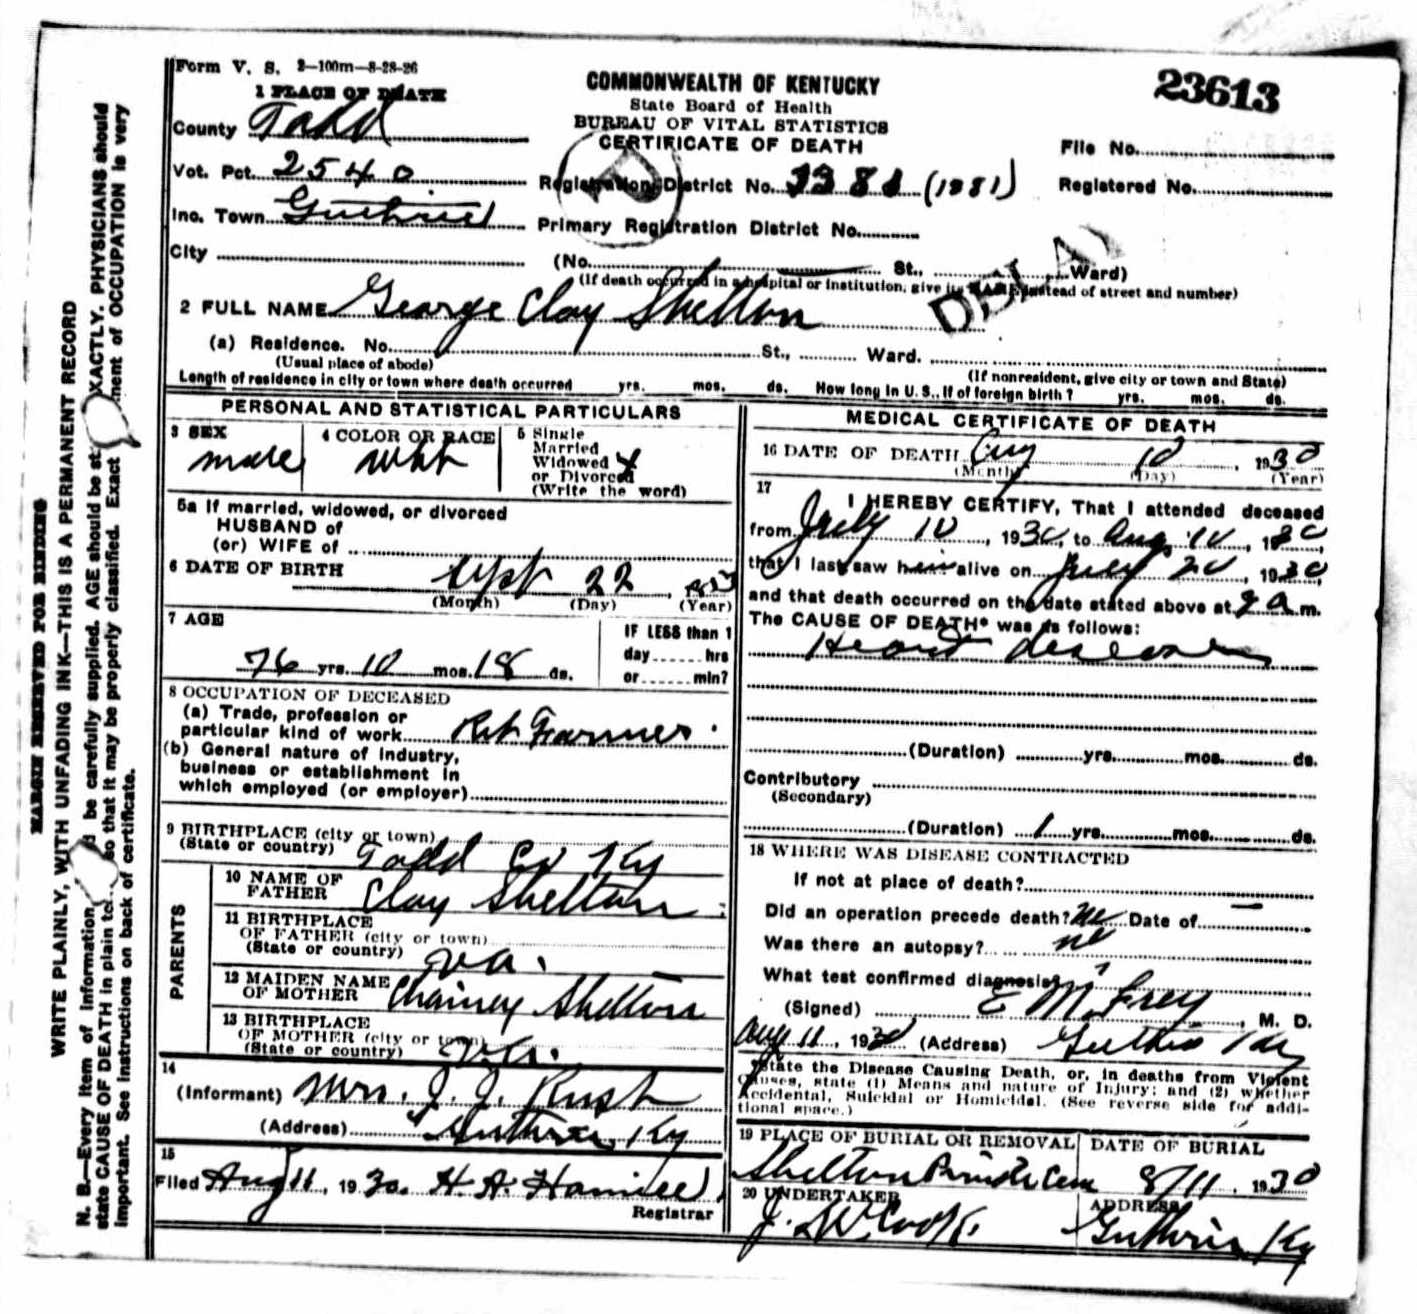 Form V. S. 2-100m-8-28-26
23613
COMMONWEALTH OF KENTUCKY
State Board of Health
BUREAU OF VITAL STATISTICS
CERTIFICATE OF DEATH
1 PLACE OF DEATH
County Todd
Vot. Pct. 2540
Inc. Town Guthrie
City
File No.
Registration District No. (1381)
Registered No.
Primary Registration District No.
(No. St., Ward)
(If death occurred in a hospital or institution, give its NAME instead of street and number)
DELAY
2 FULL NAME George Clay Shelton
(a) Residence. No. St., Ward.
(Usual place of abode) (If nonresident, give city or town and State)
Length of residence in city or town where death occurred yrs. mos. ds. How long in U. S., if of foreign birth? yrs. mos. ds.
PERSONAL AND STATISTICAL PARTICULARS
3 SEX male
4 COLOR OR RACE
5 Single
Married
Widowed X
or Divorced
(Write the word)
5a If married, widowed, or divorced
HUSBAND of
(or) WIFE of
6 DATE OF BIRTH Sept 22
(Month) (Day) (Year)
7 AGE
76 yrs. 10 mos. 18 ds.
IF LESS than 1
day hrs
or min?
8 OCCUPATION OF DECEASED
(a) Trade, profession or
particular kind of work Ret Farmer
(b) General nature of industry,
business or establishment in
which employed (or employer)
9 BIRTHPLACE (city or town)
(State or country) Todd Co Ky
PARENTS
10 NAME OF
FATHER Clay Shelton
11 BIRTHPLACE
OF FATHER (city or town)
(State or country) Va.
12 MAIDEN NAME
OF MOTHER Shelton
13 BIRTHPLACE
OF MOTHER (city or town)
(State or country) Va.
14
(Informant) Mrs. J. J. Rush
(Address) Guthrie, Ky
15
Filed Aug 11, 1930. H. A.
Registrar
MEDICAL CERTIFICATE OF DEATH
16 DATE OF DEATH Aug 10, 1930
(Month) (Day) (Year)
17
I HEREBY CERTIFY, That I attended deceased
from July 10, 1930, to Aug. 10, 1930,
that I last saw him alive on July 20, 1930,
and that death occurred on the date stated above at a m.
The CAUSE OF DEATH* was as follows:
Heart disease
(Duration) yrs. mos. ds.
Contributory
(Secondary)
(Duration) 1 yrs. mos. ds.
18 WHERE WAS DISEASE CONTRACTED
If not at place of death?
Did an operation precede death? no Date of
Was there an autopsy? no
What test confirmed diagnosis?
(Signed) E M. Frey, M. D.
Aug 11, 1930 (Address) Guthrie Ky
*State the Disease Causing Death, or, in deaths from Violent
Causes, state (1) Means and nature of Injury; and (2) whether
Accidental, Suicidal or Homicidal. (See reverse side for addi-
tional space.)
19 PLACE OF BURIAL OR REMOVAL
Shelton Private Cem
DATE OF BURIAL
8/11, 1930
20 UNDERTAKER
J. W Cook.
ADDRESS
Guthrie Ky
MARGIN RESERVED FOR BINDING
WRITE PLAINLY, WITH UNFADING INK—THIS IS A PERMANENT RECORD
N. B.—Every item of information be carefully supplied. AGE should be st XACTLY. PHYSICIANS should
state CAUSE OF DEATH in plain te so that it may be properly classified. Exact ment of OCCUPATION is very
important. See instructions on back of certificate.